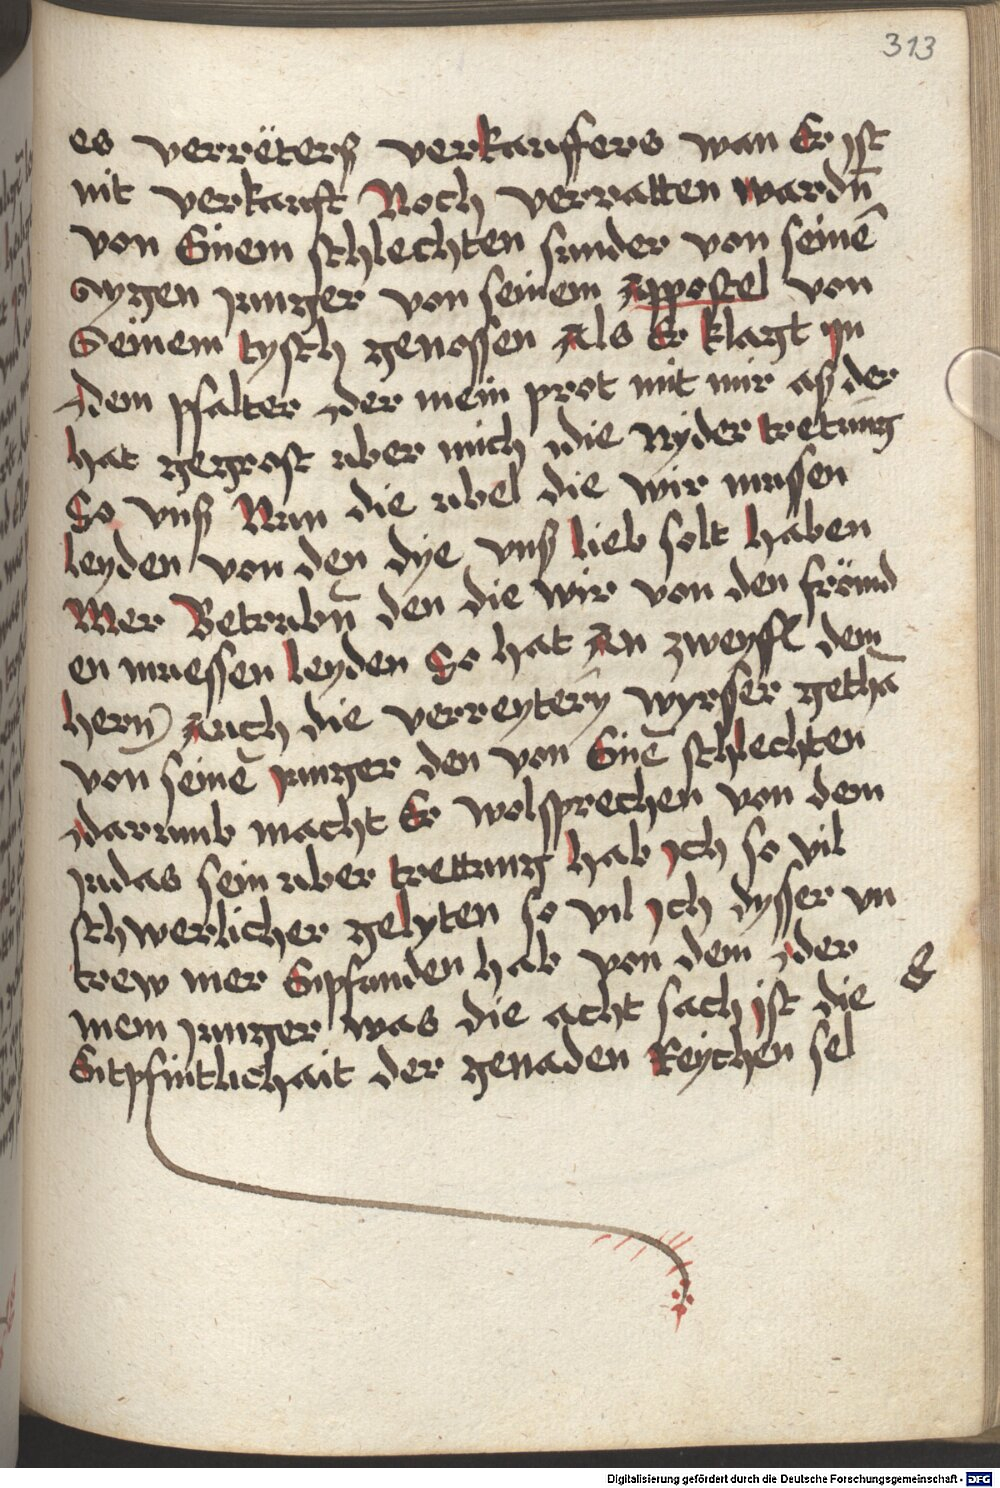 313
es verräterß verkauffers wan Er ist
nit verkauft Noch verratten wardn̄
von Einem schlechten sunder von seinē
aygen junger von seinem Appostel von
Seinem tysch genossen Als Er klagt jn
dem psalter der mein prot mit mir aß der
hat gegrost uber mich die Nyder tretung
So vnß Nun die ubel die wir mussen
leyden von den dye vnß lieb solt haben
Mer Betrubn̄ den die wir von den fröund
en muessen leyden So hat An zweyfl dem
hern Auch die verreytery wyrser gethā
von seinē junger den von Einē schlechten
darumb macht Er wolsprechen von dem
judas sein uber trettung hab jch so vil
schwerlicher gelyten so vil jch dysser vn
trew mer Enpfunden hab von dem der
mein junger was die acht sach jst die
Entpfintlichait der genaden Reychen sel
8
Digitalisierung gefördert durch die Deutsche Forschungsgemeinschaft - DFG